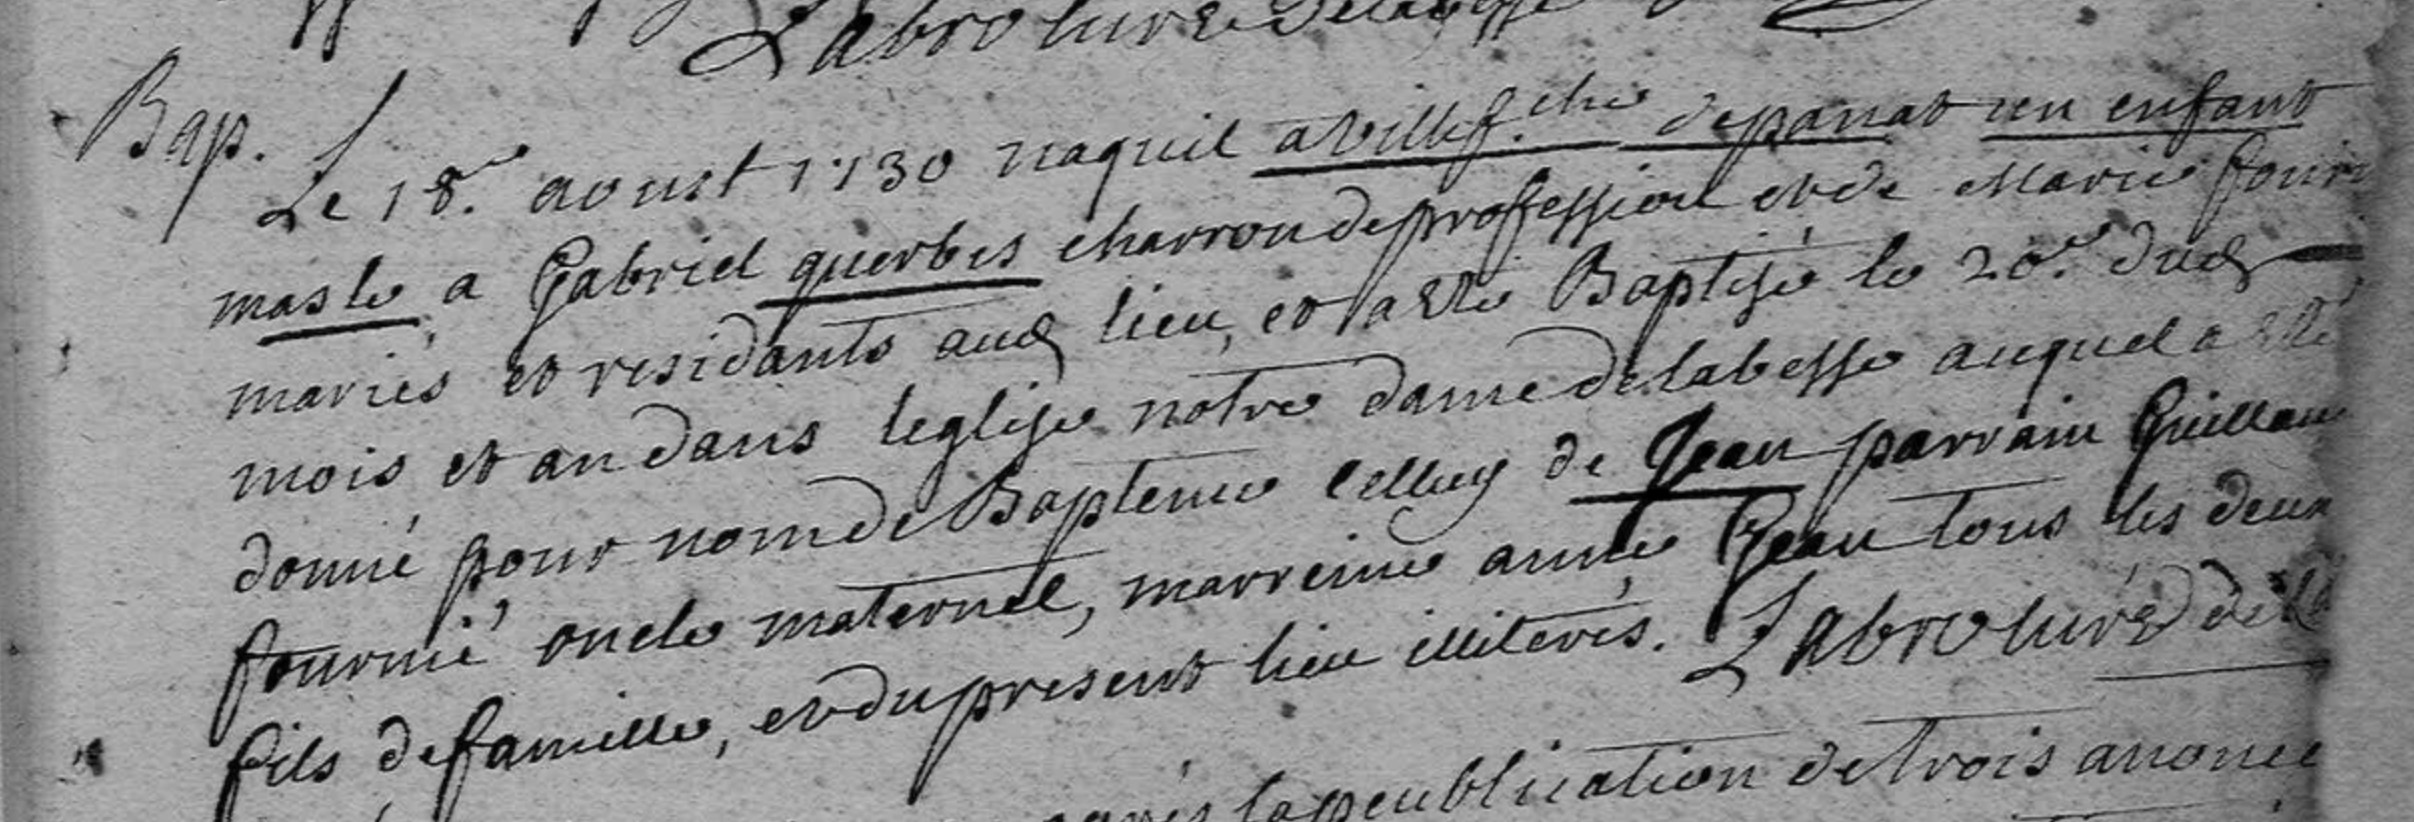 Labro curé Delabesse
Bap. Le 18.e aoust 1730 naquit a Villef.che depanat un enfant
masle a Gabriel querbes charron de profession et de Marie fourn
mariés et residants aud lieu, et a été Baptisé le 20.e dud
mois et an dans leglise notre dame de labesse auquel a été
donné pour nom de Bapteme celluy de Jean parrain Guillaum
fournié oncle maternel, marreine anne Jean tous les deux
fils de famille, et du present lieu illiterés. Labro curé de la
après la publication de trois anonce